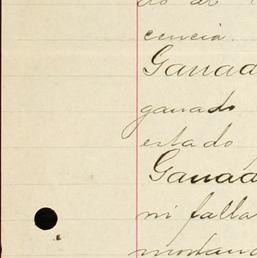 cencia.
Ganad
ganado
estado
Ganad
mi falla